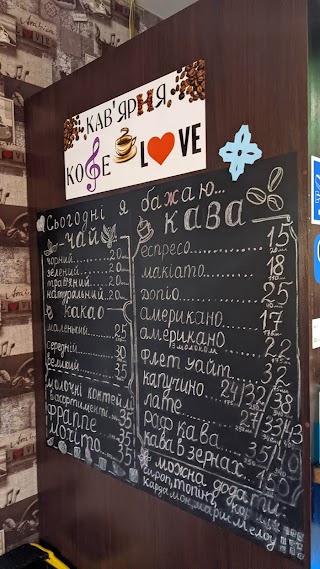 КАВ'ЯРНЯ
КОФЕ LOVE
Сьогодні я бажаю...
чай
чорний.......20
зелений......20
трав'яний....20
натуральний..20
какао
маленький....25
середній.....30
великий......35
молочні коктейлі
в асортименті...35
фраппе.......35
мохіто.......35
кава
еспресо........15
макіато........18
допіо..........25
американо......17
американо
з молоком......22
флет уайт......32
капучино...24/32/38
лате.......27/33/43
раф кава...35/40
кава в зернах...150
можна додати:
сироп, топінг,
кардамон, маршмелоу